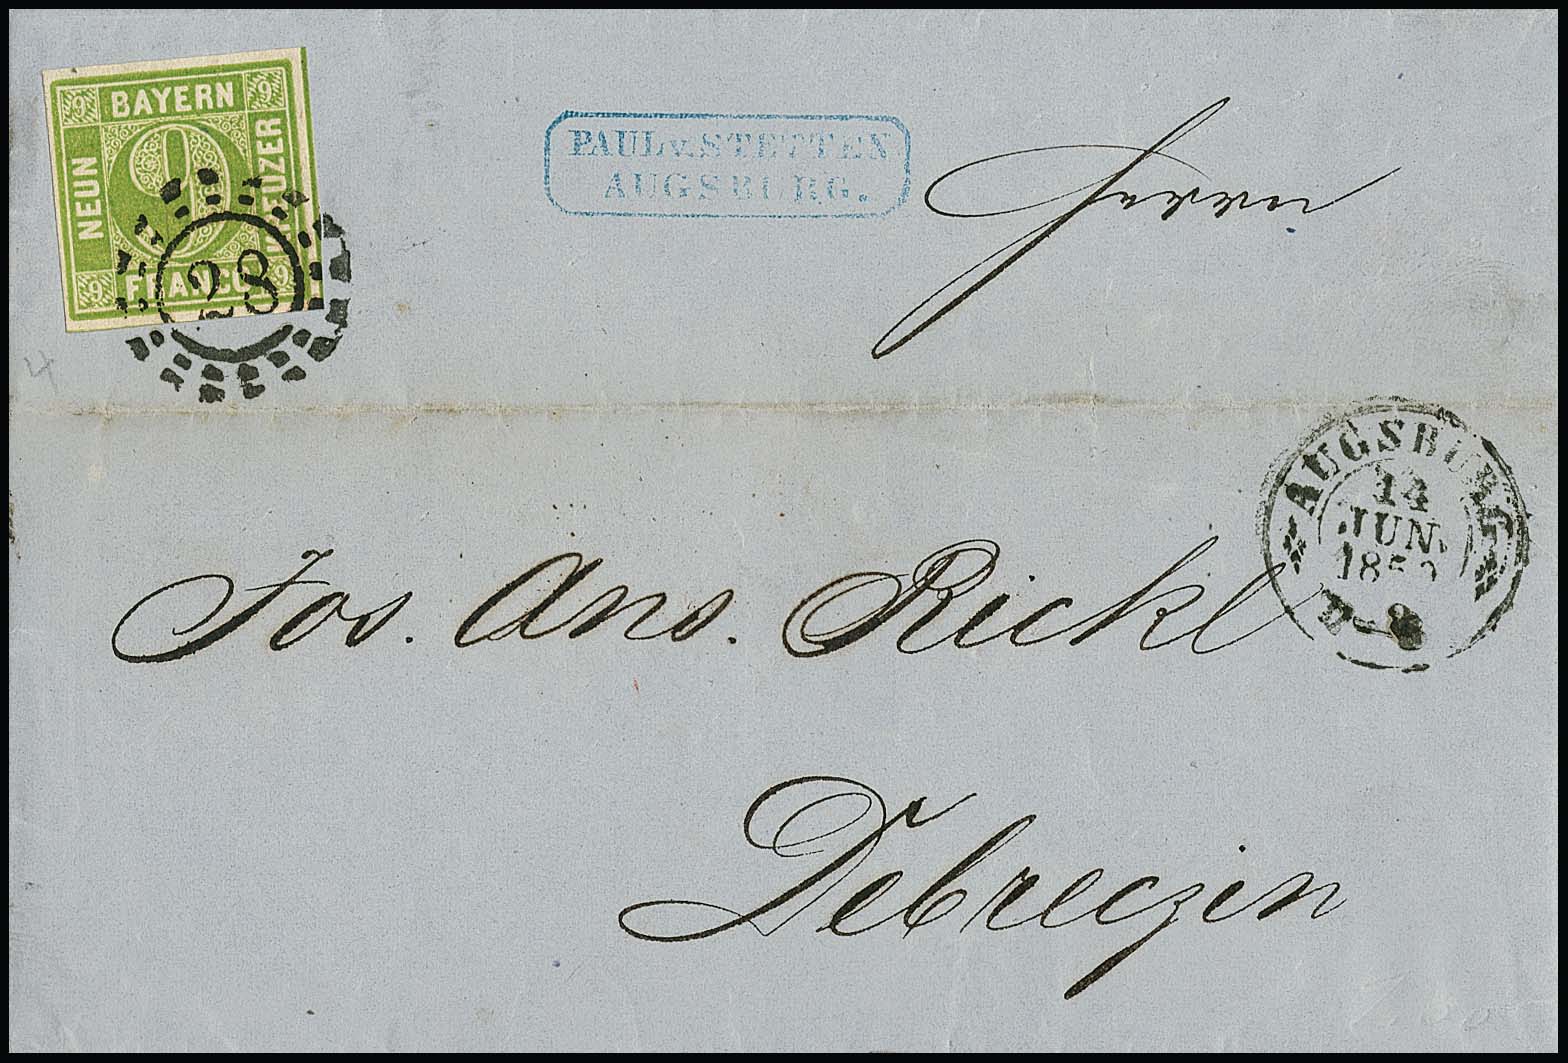 9 BAYERN 9
NEUN
9
KREUZER
9 FRANCO 9
28
PAUL v. STETTEN
AUGSBURG.
Herrn
AUGSBURG
14
JUN.
Jos. Ans. Rickl
Debreczin
4